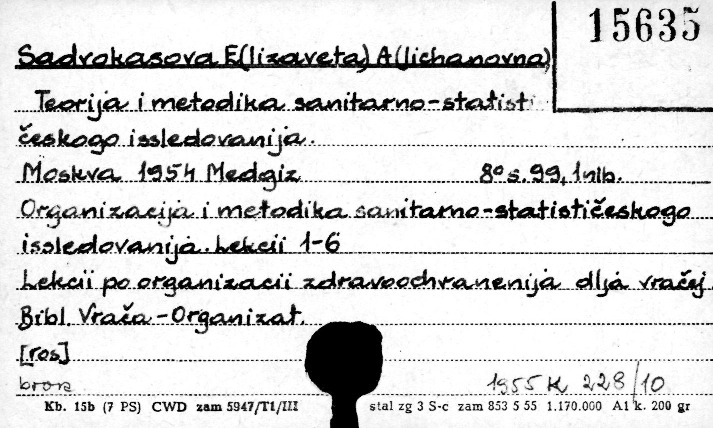 15635
Sadvokasova E(lizaveta) A(lichanovna)
Teorija i metodika sanitarno-statisti
českogo issledovanija.
Moskva 1954 Medgiz 8° s. 99, 1 nlb.
Organizacija i metodika sanitarno-statističeskogo
issledovanija. Lekcii 1-6
Lekcii po organizacii zdravoochranenija dlja vračej.
Bibl. Vrača-Organizat.
[ros]
brosz 1955 K 228/10
Kb. 15b (7 PS) CWD zam 5947/T1/III stal zg 3 S-c zam 853 5 55 1.170.000 A1 k. 200 gr